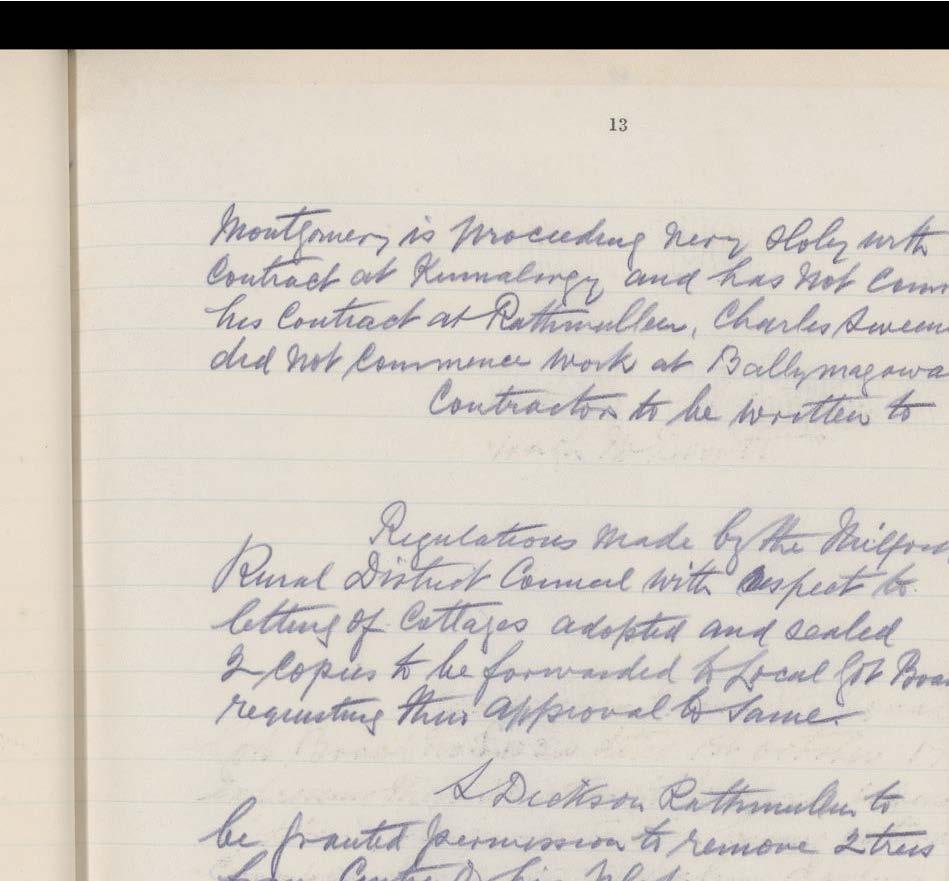 13
Montgomery is proceeding very sloly with
Contract at Kinnalargy and has not Comm
his Contract at Rathmullen, Charles Sween
did not Commence work at Ballymagowa
Contractors to be written to
Regulations made by the Milford
Rural District Council with respect to
letting of Cottages adopted and sealed
2 Copies to be forwarded to Local Govt Boa
requesting their approval to Same.
S Dickson Rathmullen to
be granted permission to remove 2 trees
from Centre of his